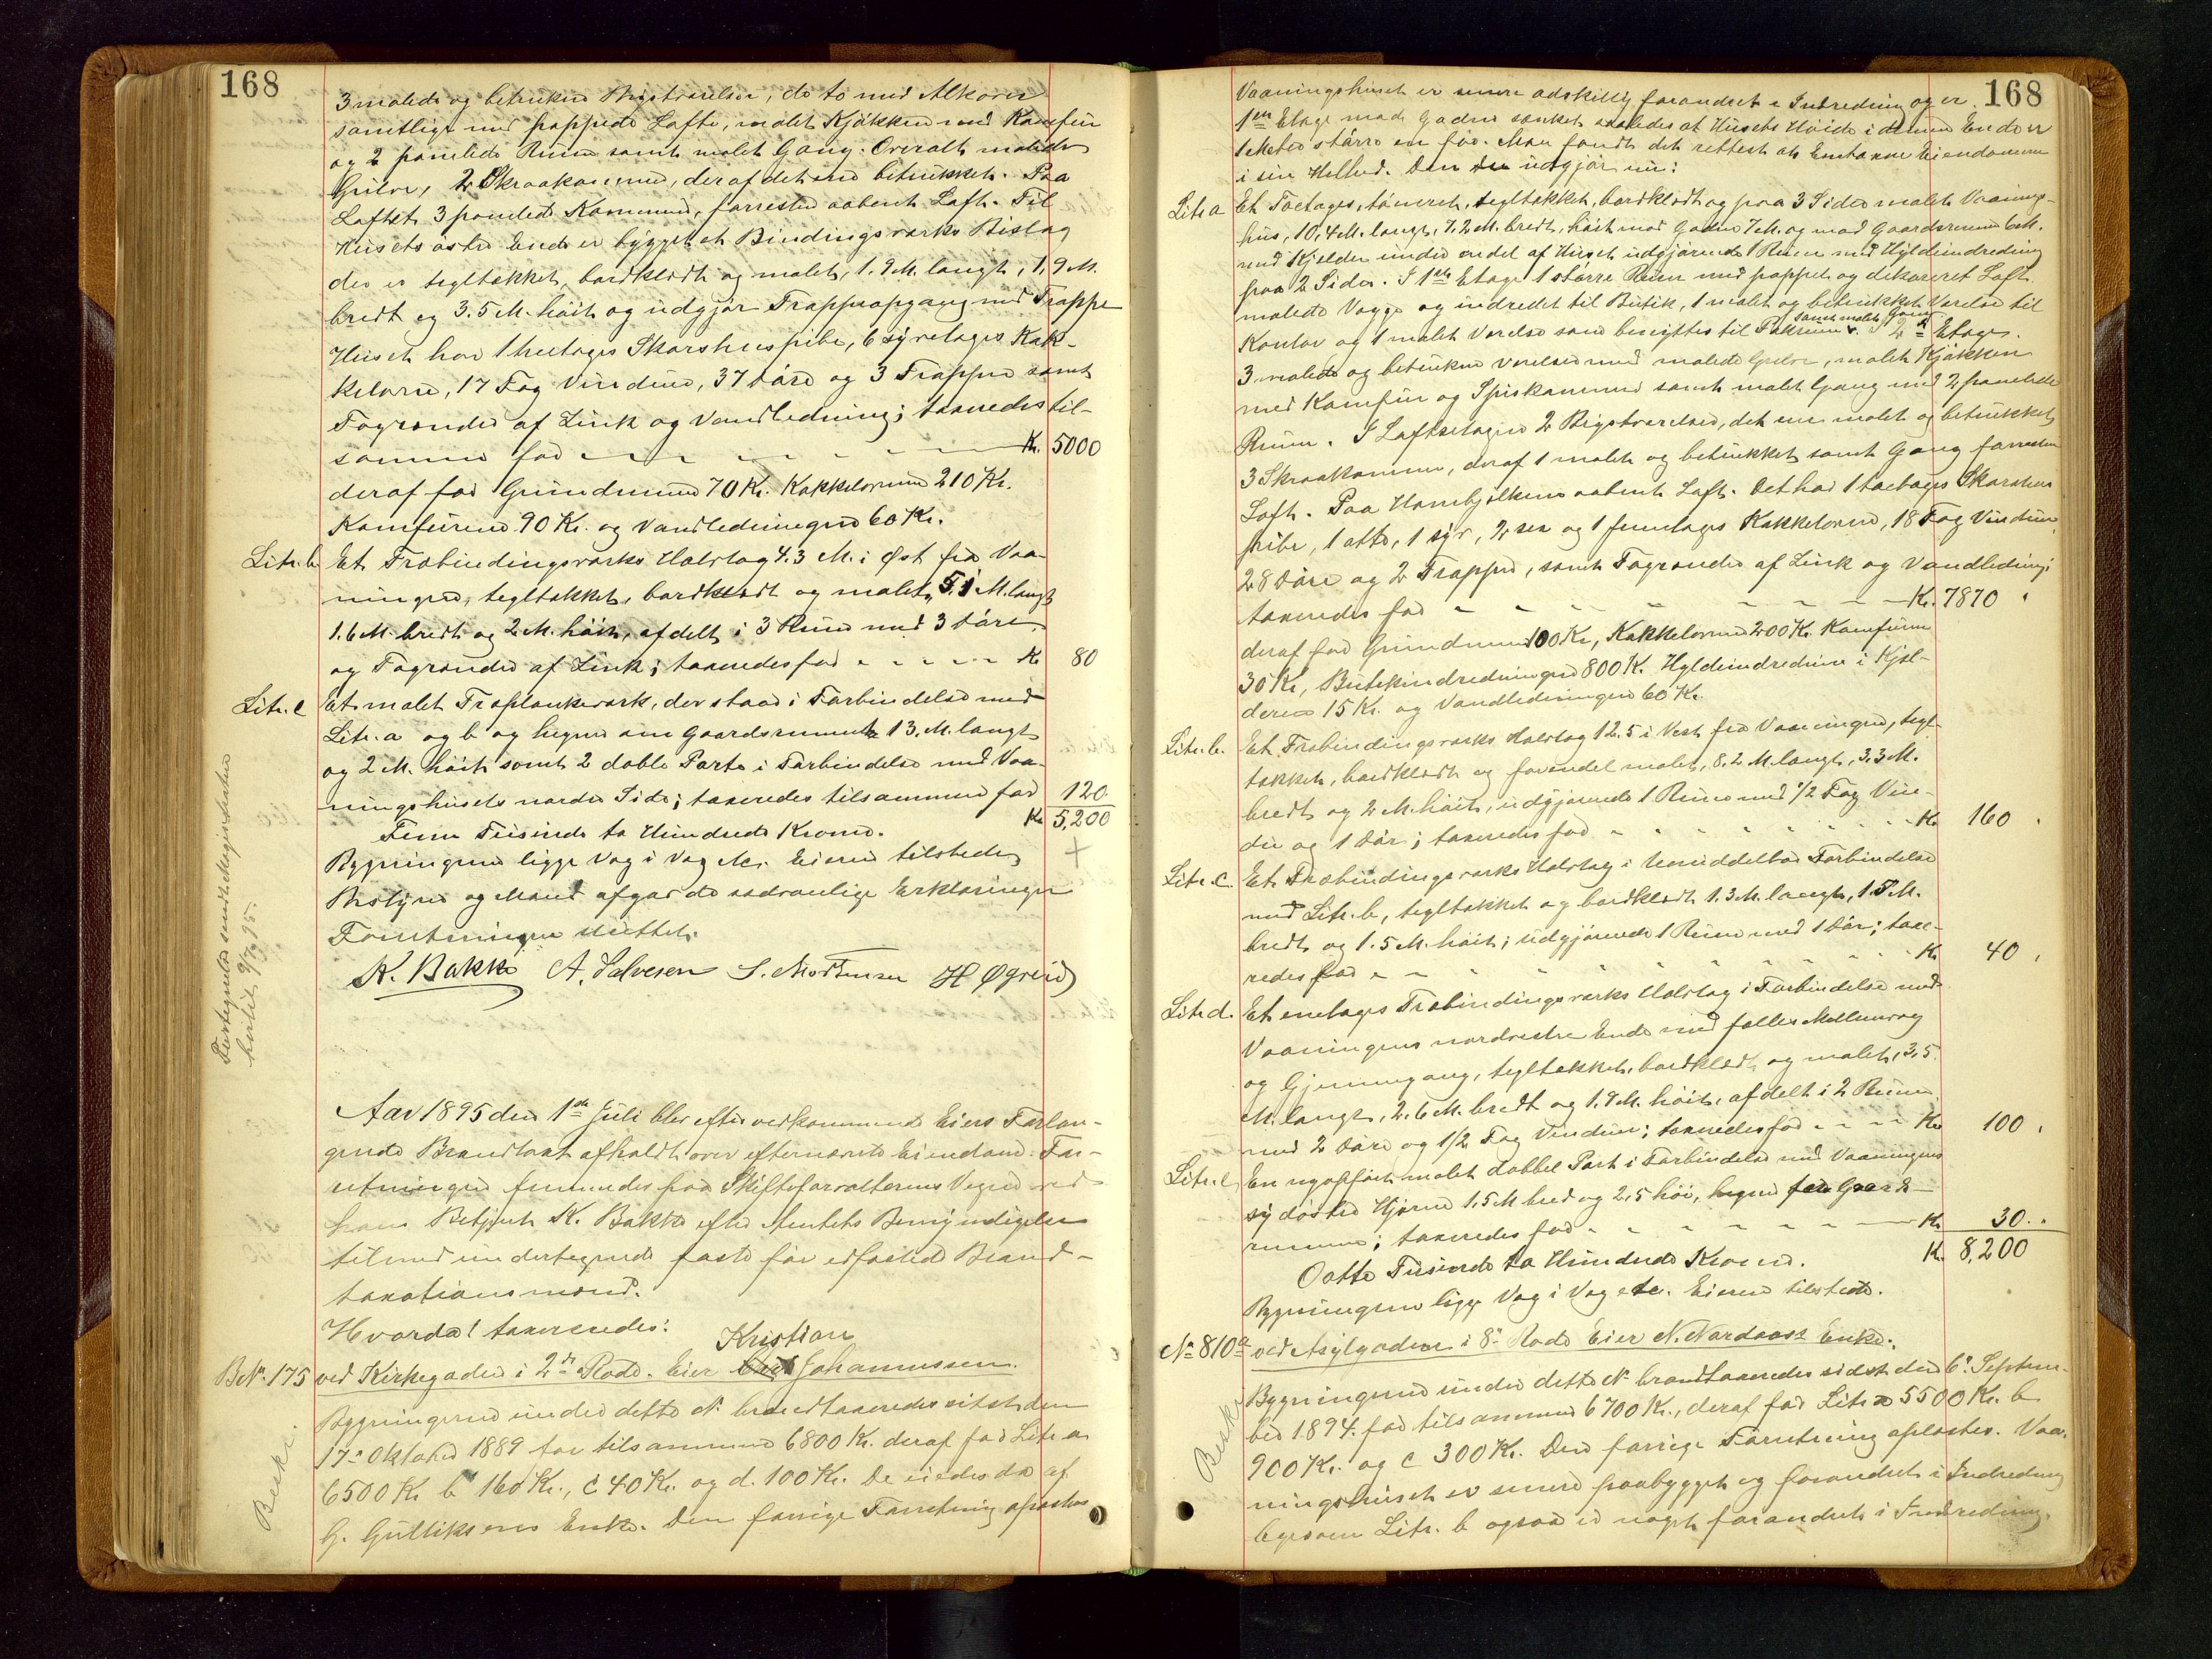 168
3 malede og betrukne Bigtværelser, de to med Alkover
samtlige med pappede Lofte, malet Kjøkken med Komfur
og 2 panelede Rum samt malet Gang. Overalt malede
Gulve, 2 Skraakammere, deraf det ene betrukket. Paa
Loftet 3 panelede Kammere, forresten aabent Loft. Til
Husets østre Ende er bygget et Bindingsværks Bislag
der er tegltækket, bordklædt og malet, 1.9 M. langt, 1,9 M.
bredt og 3.5 M. høit og udgjør Trappeopgang med Trappe
Huset har 1 treetages Skorstenspibe, 6 syvetages Kak-
kelovne, 17 Fag Vinduer, 37 Døre og 3 Trapper samt
Tagrender af Zink og Vandledning; taxeredes til-
sammen for Kr. 5000
deraf for Grundmuren 70 Kr. Kakkelovnene 210 Kr.
Komfurene 90 Kr. og Vandledningen 60 Kr.
Litr. b Et Træbindingsværks Halvtag 4.3 M. i Øst fra Vaa-
ningen, tegltækket, bordklædt og malet, 5.1 M. langt
1.6 M. bredt og 2 M. høit, afdelt i 3 Rum med 3 Døre
og Tagrender af Zink; taxeredes for Kr 80
Litr. c Et malet Træplankeværk, der staar i Forbindelse med
Litr. a og b og hegner om Gaardsrummet 13. M. langt
og 2 M. høit samt 2 doble Porte i Forbindelse med Vaa-
ningshusets nordre Side; taxeredes tilsammen for 120.
Fem Tusinde to Hundrede Kroner. Kr 5,200
Bygningerne ligge Væg i Væg etc. Eieren tilstede
Bestyrer og Mænd afgav de sædvanlige Erklæringer
Forretningen sluttet.
K. Bakke A. Salvesen S. Mortensen H Øgreid
Fortegnelse sendt Magistraten
hertil 9/7 95.
Aar 1895 den 1ste Juli blev efter vedkommende Eiers Forlan-
gende Brandtaxt afholdt over efternævnte Eiendomme. For-
retningen fremmedes paa Skifteforvalterens Vegne ved
hans Betjent K. Bakke efter Amtets Bemyndigelse
tilmed undertegnede faste for edfæstede Brand-
taxationsmænd.
Hvorda! taxeredes:
BN. 175 ved Kirkegaden i 2den Rode. Eier Kristian Johannessen.
Beskr.
Bygningerne under dette N. brandtaxeredes sidst den
17de Oktober 1889 for tilsammen 6800 Kr. deraf for Litr a
6500 Kr b 160 Kr., c 40 Kr. og d. 100 Kr. De eiedes da af
G. Gulliksens Enke. Den forrige Forretning oplæstes
168
Vaaningshuset er senere adskillig forandret i Indredning og er
1ste Etage mod Gaden sænket saaledes at Husets Høide i denne Ende er
1 Meter større en før. Man fandt det rettest at Emtaxere Eiendommen
i sin Helhed. Den udgjør nu:
Litr a Et Toetages, tømret, tegltækket, bordklædt og paa 3 Sider malet Vaanings-
hus, 10,4 M. langt, 7.2 M. bredt, høit mod Gaden 7 M. og mod Gaardsrummet 6 M.
med 1 Kjelder under endel af Huset udgjørende 1 Rum med Hyldeindredning
paa 2 Sider. I 1ste Etage 1 større Rum med pappet og dekoreret Loft
malede Vægge og indredet til Butik, 1 malet og betrukket Værelse til
Kontor og 1 malet Værelse som benyttes til Pakrum samt malet Gang. I 2den Etage
3 malede og betrukne Værelser med malede Gulve, malet Kjøkken
med Komfur og Spiskammer samt malet Gang med 2 panelede
Rum. I Loftsetagen 2 Bigtværelser, det ene malet og betrukket
3 Skraakammer, deraf 1 malet og betrukket samt Gang forresten
Loft. Paa Hanebjelkerne aabent Loft. Det har 1 toetages Skorstens
pibe, 1 otte, 1 syv, 2 sex og 1 femetages Kakkelovne, 18 Fag Vinduer
28 Døre og 2 Trapper, samt Tagrender af Zink og Vandledning;
taxeredes for Kr. 7870
deraf for Grundmuren 100 Kr, Kakkelovnene 200 Kr. Komfuren
30 Kr, Butikindredningen 800 Kr. Hyldeindredninge i Kjel-
deren 15 Kr. og Vandledningen 60 Kr.
Litr. b. Et Træbindingsværks Halvtag 12.5 i Vest fra Vaaningen, tegl-
tækket, bordklædt og forendel malet, 8.2 M. langt, 3,3 M.
bredt og 2 M. høit, udgjørende 1 Rum med 1/2 Fag Vin-
due og 1 Dør; taxeredes for Kr. 160
Litr. c. Et Træbindingsværks Halvtag i Umiddelbar Forbindelse
med Litr. b, tegltækket og bordklædt 1.3 M. langt, 1.5 M.
bredt og 1.5 M. høit; udgjørende 1 Rum med 1 Dør; taxe-
redes for Kr. 40
Litr d. Et enetages Træbindingsværks Halvtag i Forbindelse med
Vaaningens nordvestre Ende med fælles Mellemvæg
og Gjennemgang, tegltækket, bordklædt og malet, 3,5
M. langt, 2.6 M. bredt og 1.9 M. høit, afdelt i 2 Rum
med 2 Døre og 1/2 Fag Vindue; taxeredes for Kr 100
Litr. e En nyopført malet dobbel Port i Forbindelse med Vaaningens
sydøstre Hjørne 1,5 M bred og 2,5 høi, hegner for Gaards-
rummet; taxeredes for Kr. 30
Otte Tusinde to Hundrede Kroner. Kr. 8,200
Bygningerne ligge Væg i Væg etc. Eieren tilstede.
No 810a ved Asylgaden i 8de Rode Eier N. Nordaas's Enke.
Beskr
Bygningerne under dette N. brandtaxeredes sidst den 6te Septem-
ber 1894 for tilsammen 6700 Kr., deraf for Litr a 5500 Kr. b
900 Kr. og c 300 Kr. Den forrige Forretning oplæstes. Vaa-
ningshuset er senere paabygget og forandret i Indredning
ligesom Litr. b ogsaa er noget forandret i Indredning.